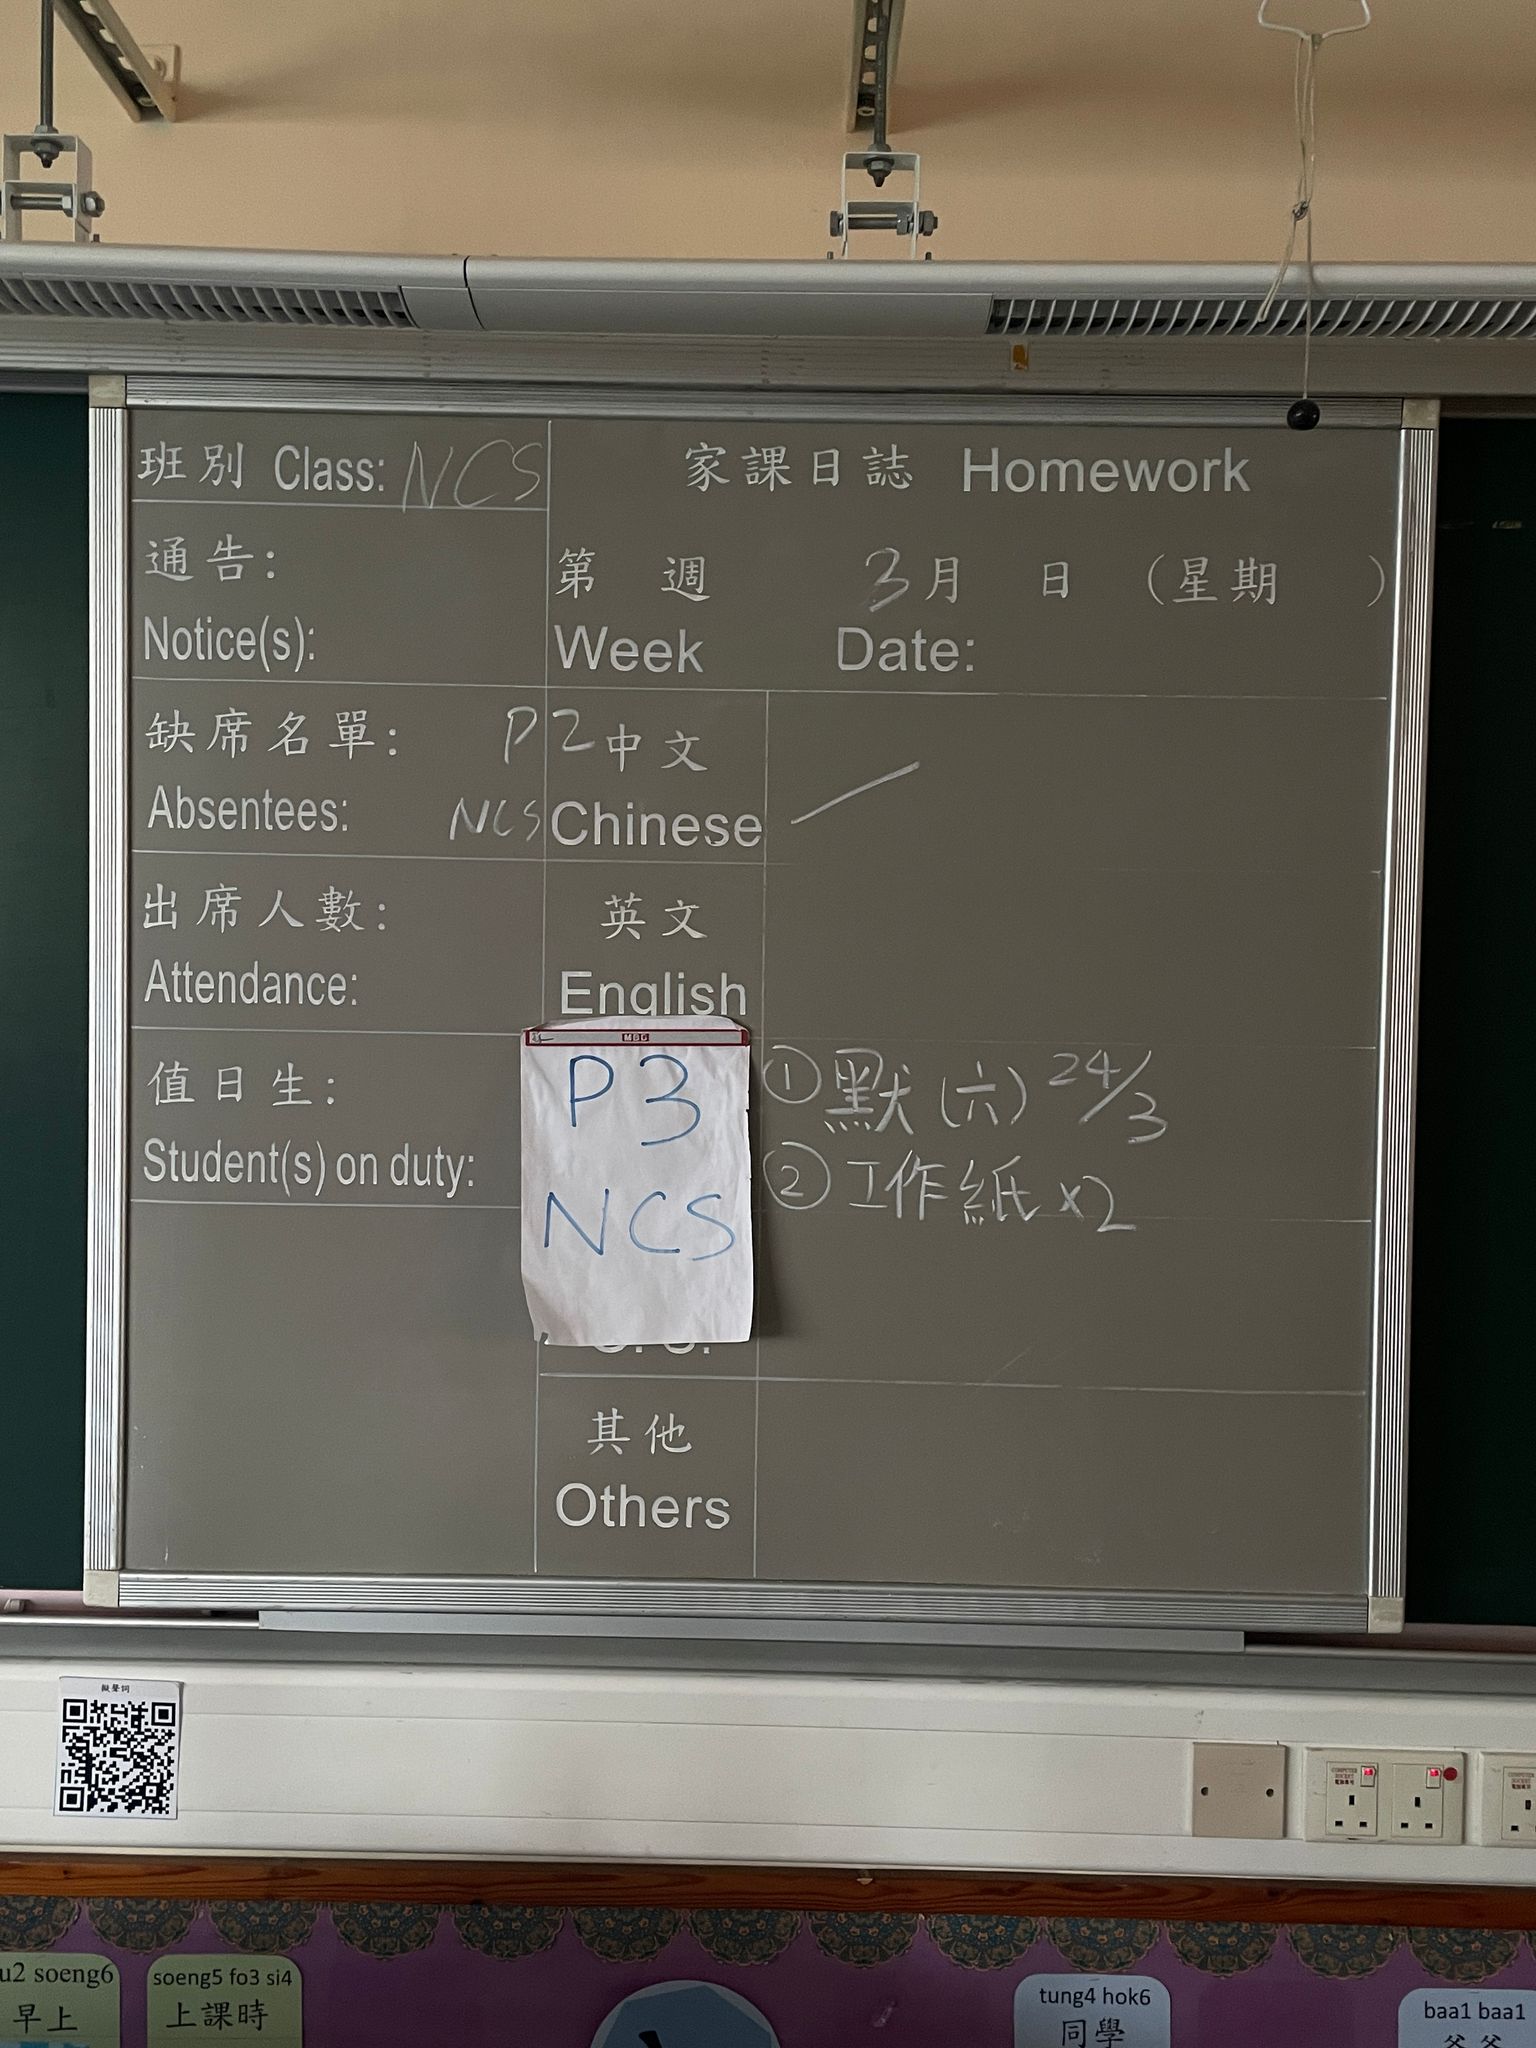 班別 Class: NCS
家課日誌 Homework
通告:
Notice(s):
第 週 3月 日 (星期 )
Week Date:
缺席名單:
Absentees:
P2 中文
NCS Chinese
出席人數:
Attendance:
英文
English
值日生:
Student(s) on duty:
P3
NCS
① 默(六) 24/3
② 工作紙x2
其他
Others
擬聲詞
COMPUTER
SOCKET
電腦專用
soeng6
早上
soeng5 fo3 si4
上課時
tung4 hok6
同學
baa1 baa1
爸爸